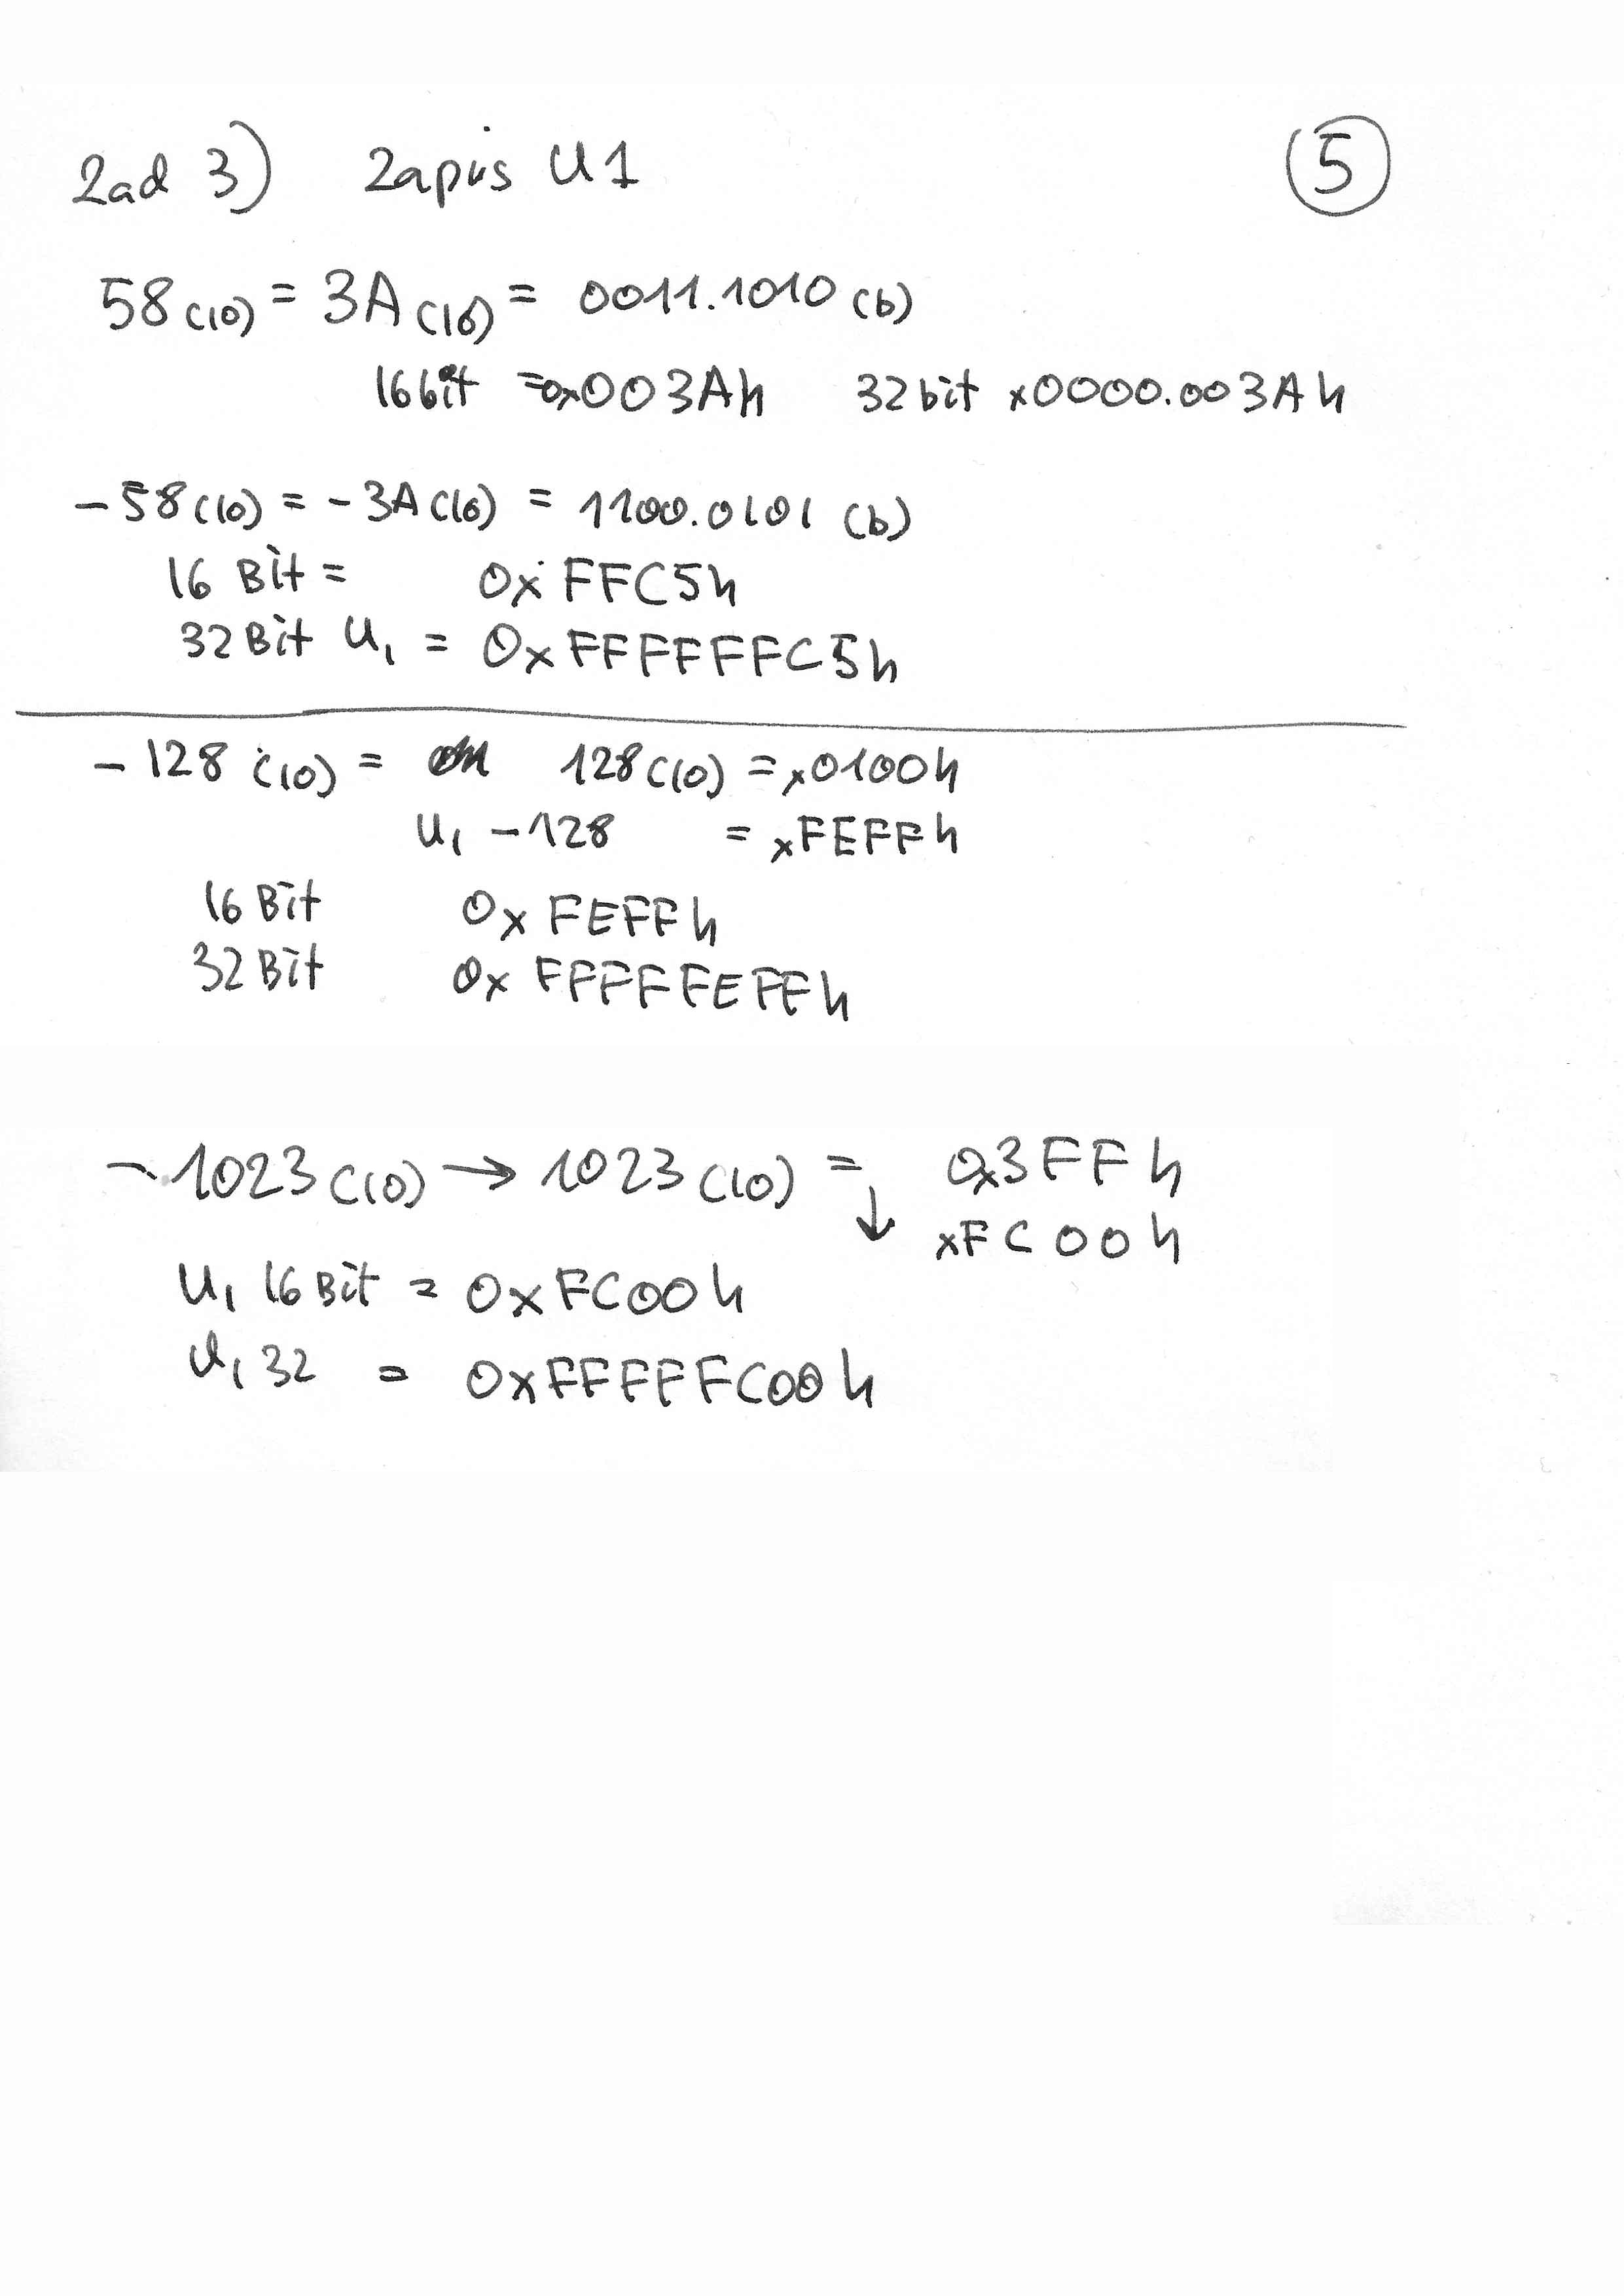 Zad 3) Zapis U1 5
58 (10) = 3A (16) = 0011.1010 (b)
16 bit = 0x003Ah 32 bit x0000.003Ah
-58 (10) = -3A (16) = 1100.0101 (b)
16 Bit = 0x FFC5h
32 Bit U1 = 0xFFFFFFC5h
-128 (10) = 128 (10) = x0100h
U1 -128 = xFEFFh
16 Bit 0x FEFFh
32 Bit 0x FFFFFEFFh
-1023 (10) → 1023 (10) = 0x3FFh
↓ xFC00h
U1 16 Bit = 0xFC00h
U1 32 = 0xFFFFFC00h